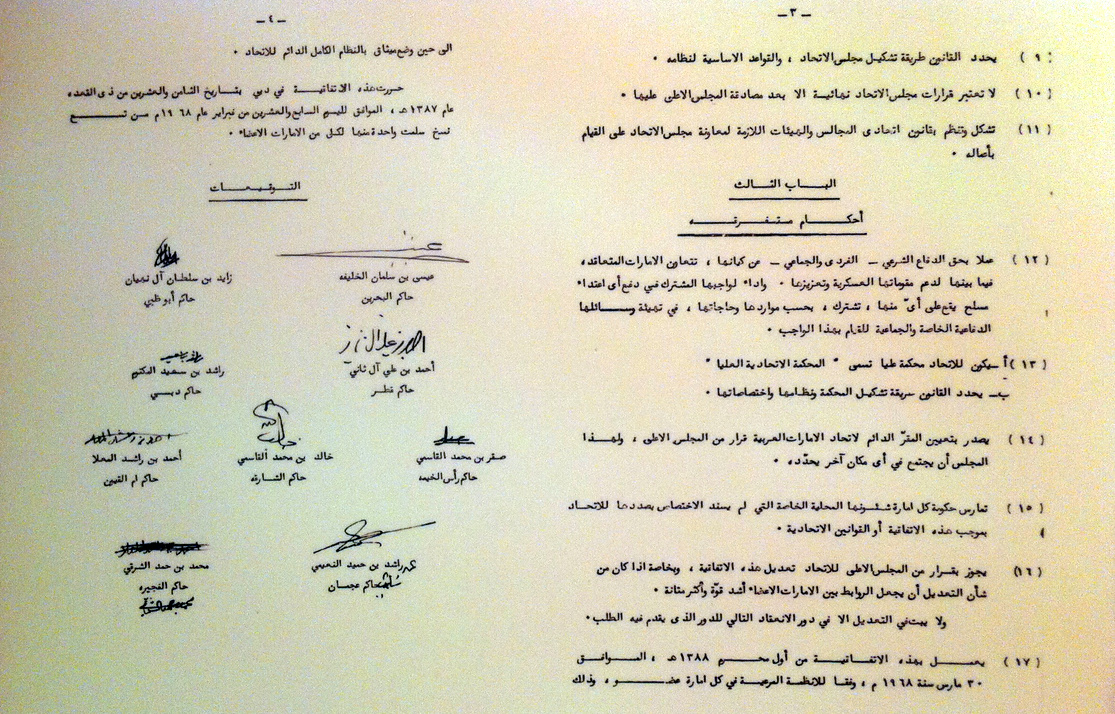 — ٣ —
( ٩ ) يحدد القانون طريقة تشكيل مجلس الاتحاد ، والقواعد الاساسية لنظامه .
( ١٠ ) لا تعتبر قرارات مجلس الاتحاد نهائية الا بعد مصادقة المجلس الاعلى عليها .
( ١١ ) تشكل وتنظم بقانون اتحادى المجالس والهيئات اللازمة لمعاونة مجلس الاتحاد على القيام
بأعماله .
البـاب الثـالث
أحكـام متـفـرقـه
( ١٢ ) عملا بحق الدفاع الشرعي — الفردى والجماعي — عن كيانها ، تتعاون الامارات المتعاقده،
فيما بينها لدعم مقوماتها العسكرية وتعزيزها . واداء لواجبها المشترك في دفع أى اعتداء
مسلح يقع على أىّ منها ، تشترك ، بحسب مواردها وحاجاتها ، في تهيئة وسـائلها
الدفاعية الخاصة والجماعية للقيام بهذا الواجب .
( ١٣ ) أ ـ يكون للاتحاد محكمة عليا تسمى " المحكمة الاتحادية العليا "
ب ـ يحدد القانون طريقة تشكيل المحكمة ونظامها واختصاصاتها .
( ١٤ ) يصدر بتعيين المقرّ الدائم لاتحاد الامارات العربية قرار من المجلس الاعلى ، ولهـذا
المجلس أن يجتمع في أى مكان آخر يحدّده .
( ١٥ ) تمارس حكومة كل امارة شئـونها المحلية الخاصة التي لم يسند الاختصاص بصددها للاتحـاد
بموجب هذه الاتفاقية أو القوانين الاتحادية .
( ١٦ ) يجوز بقـرار من المجلس الاعلى للاتحاد تعديل هذه الاتفاقية ، وبخاصة اذا كان من
شأن التعديل أن يجعل الروابط بين الامارات الاعضاء أشد قوّة وأكثر متانة .
ولا يبت في التعديل الا في دور الانعقاد التالي للدور الذى يقدم فيه الطلب .
( ١٧ ) يعمـل بهذه الاتفـاقيـة من أول محـرم ١٣٨٨ هـ ، المـوافـق
٣٠ مارس سنة ١٩٦٨ م ، وفقا للانظمة المرعية في كل امارة عضـو ، وذلك
— ٤ —
الى حين وضع ميثاق بالنظام الكامل الدائم للاتحاد .
حررت هذه الاتفاقيـة في دبي بتـاريخ الثامن والعشرين من ذى القعده
عام ١٣٨٧ هـ ، الموافق لليوم السابع والعشرين من فبراير عام ١٩٦٨ م مـن تسـع
نسخ سلمت واحدة منها لكل من الامارات الاعضاء .
التـوقيعـات
عيسى بن سلمان الخليفه
حاكم البحرين
زايد بن سلطان آل نهيان
حاكم أبو ظبي
أحمد بن علي آل ثاني
حاكم قطر
راشد بن سعيد المكتوم
حاكم دبـي
صقر بن محمد القاسمي
حاكم رأس الخيمه
خالد بن محمد القاسمي
حاكم الشارقه
أحمد بن راشد المعلا
حاكم ام القيين
راشد بن حميد النعيمي
حاكم عجمان
محمد بن حمد الشرقي
حاكم الفجيره